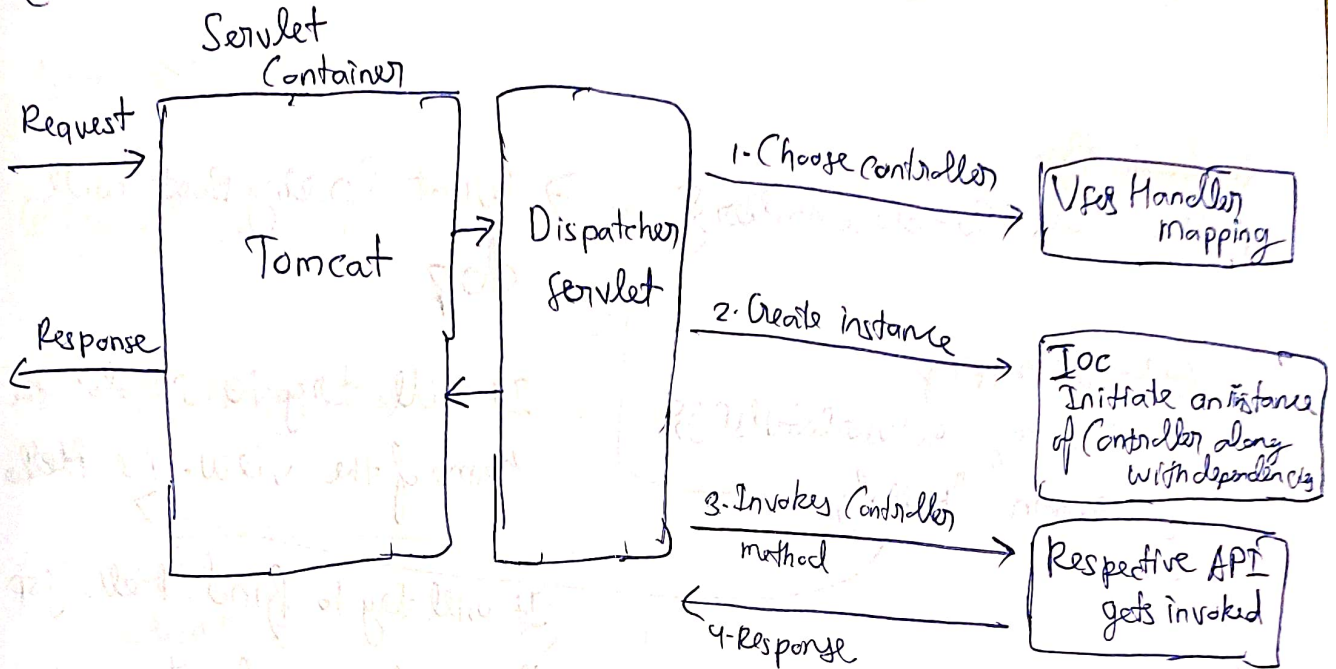 Servlet
Container
Request
Response
Tomcat
Dispatcher
Servlet
1-Choose Controller
Uses Handler
Mapping
2. Create instance
IOC
Initiate an instance
of Controller along
with dependencies
3-Invokes Controller
method
Respective API
gets invoked
4-Response